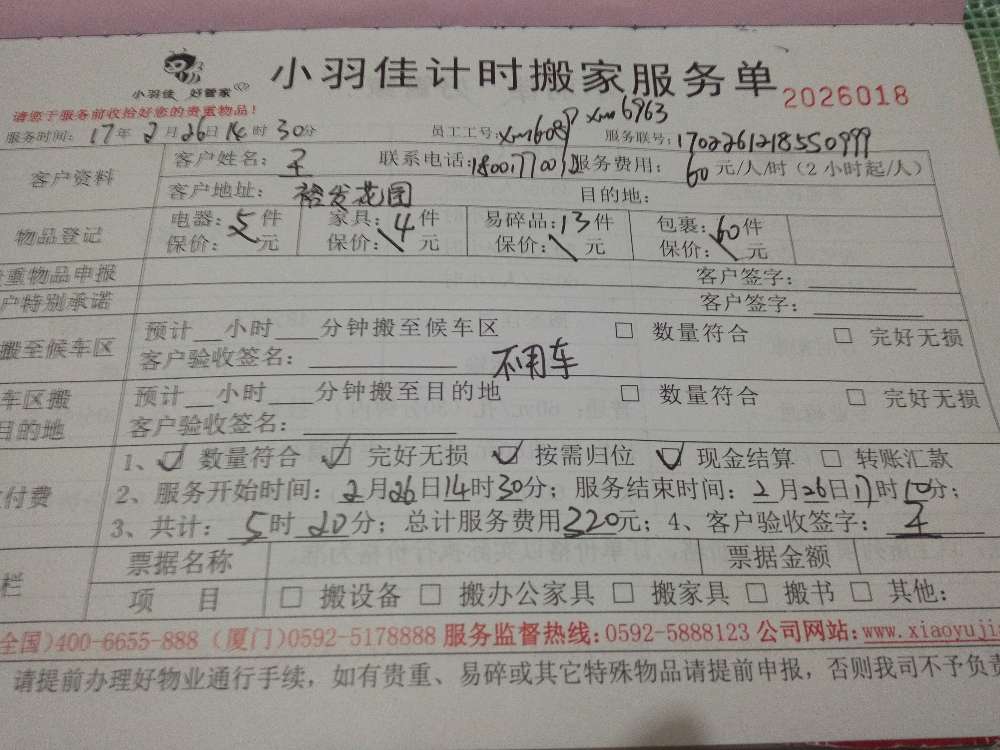 小羽佳 好管家
小羽佳计时搬家服务单
2026018
请您于服务前收拾好您的贵重物品!
服务时间: 17年 2月26日14时30分 员工工号: xm6089 xm6963 服务联号: 1702261218550999
客户资料
客户姓名: 联系电话: 服务费用: 60元/人/时(2小时起/人)
客户地址: 裕发花园 目的地:
物品登记
电器: 5件 家具: 4件 易碎品: 13件 包裹: 60件
保价: 元 保价: 元 保价: 元 保价: 元
贵重物品申报 客户签字:
户特别承诺 客户签字:
搬至候车区
预计__小时___分钟搬至候车区 □ 数量符合 □ 完好无损
客户验收签名: 不用车
车区搬
目的地
预计__小时___分钟搬至目的地 □ 数量符合 □ 完好无损
客户验收签名:
付费
1、☑ 数量符合 ☑ 完好无损 ☑ 按需归位 ☑ 现金结算 □ 转账汇款
2、服务开始时间: 2月26日14时30分; 服务结束时间: 2月26日17时10分;
3、共计: 5时20分; 总计服务费用320元; 4、客户验收签字:
栏
票据名称 票据金额
项 目 □ 搬设备 □ 搬办公家具 □ 搬家具 □ 搬书 □ 其他:
全国)400-6655-888 (厦门)0592-5178888 服务监督热线:0592-5888123 公司网站:www.xiaoyuji
请提前办理好物业通行手续，如有贵重、易碎或其它特殊物品请提前申报，否则我司不予负责